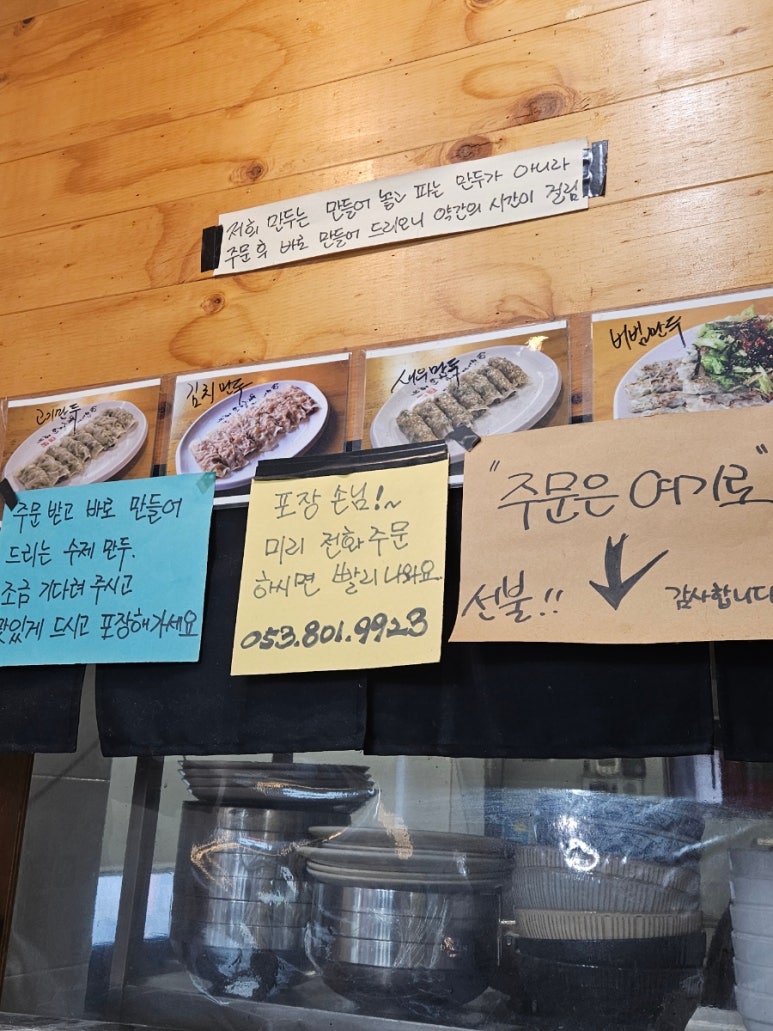 저희 만두는 만들어 놓고 파는 만두가 아니라
주문 후 바로 만들어 드리오니 약간의 시간이 걸림
고기만두
김치만두
새우만두
비빔만두
주문 받고 바로 만들어
드리는 수제 만두.
조금 기다려 주시고
맛있게 드시고 포장해가세요
포장 손님!~
미리 전화주문
하시면 빨리 나와요.
053.801.9923
"주문은 여기로"
선불!!
감사합니다